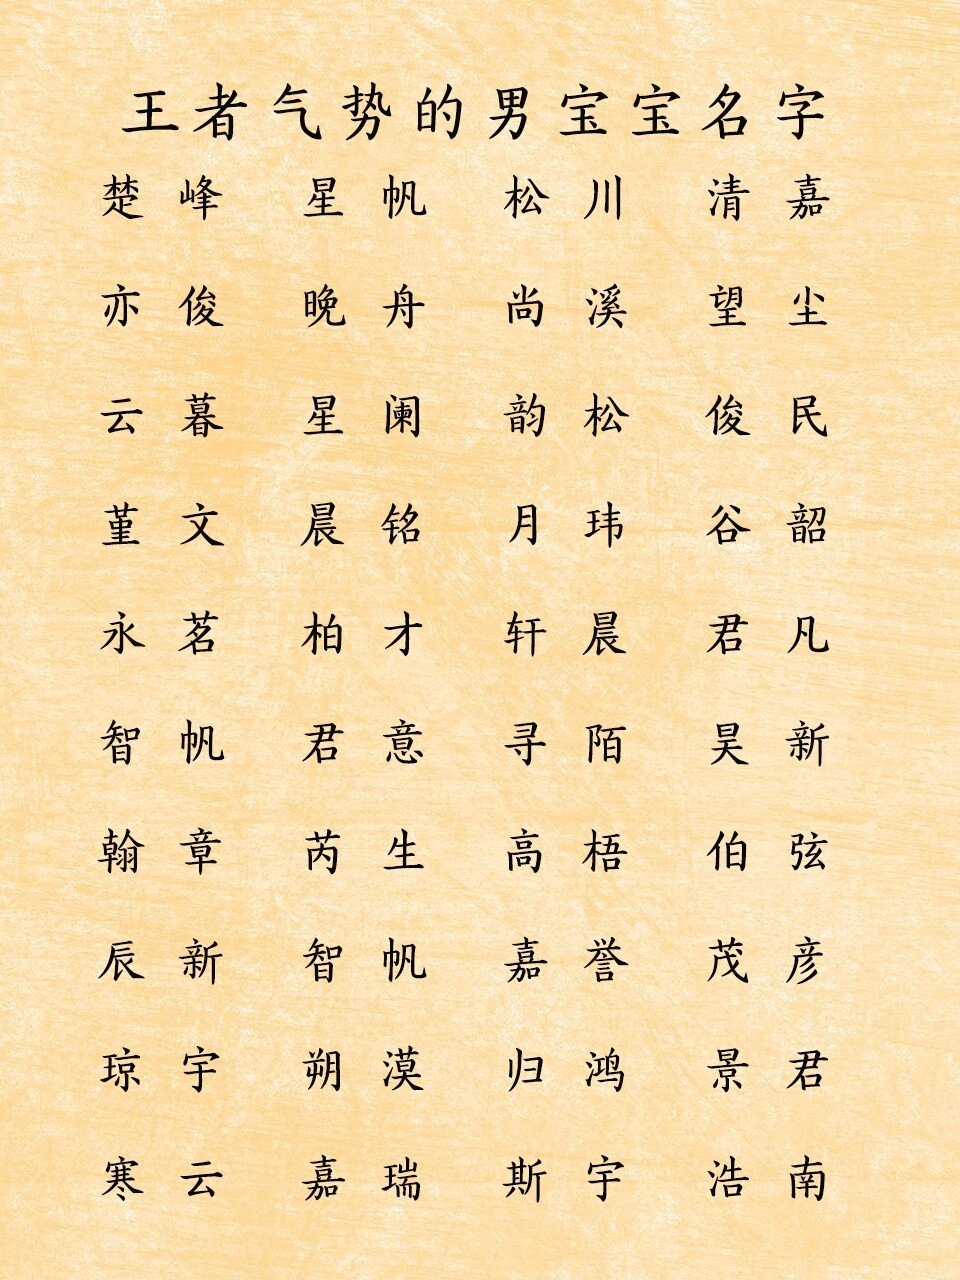 王者气势的男宝宝名字
楚峰 星帆 松川 清嘉
亦俊 晚舟 尚溪 望尘
云暮 星阑 韵松 俊民
堇文 晨铭 月玮 谷韶
永茗 柏才 轩晨 君凡
智帆 君意 寻陌 昊新
翰章 芮生 高梧 伯弦
辰新 智帆 嘉誉 茂彦
琼宇 朔漠 归鸿 景君
寒云 嘉瑞 斯宇 浩南